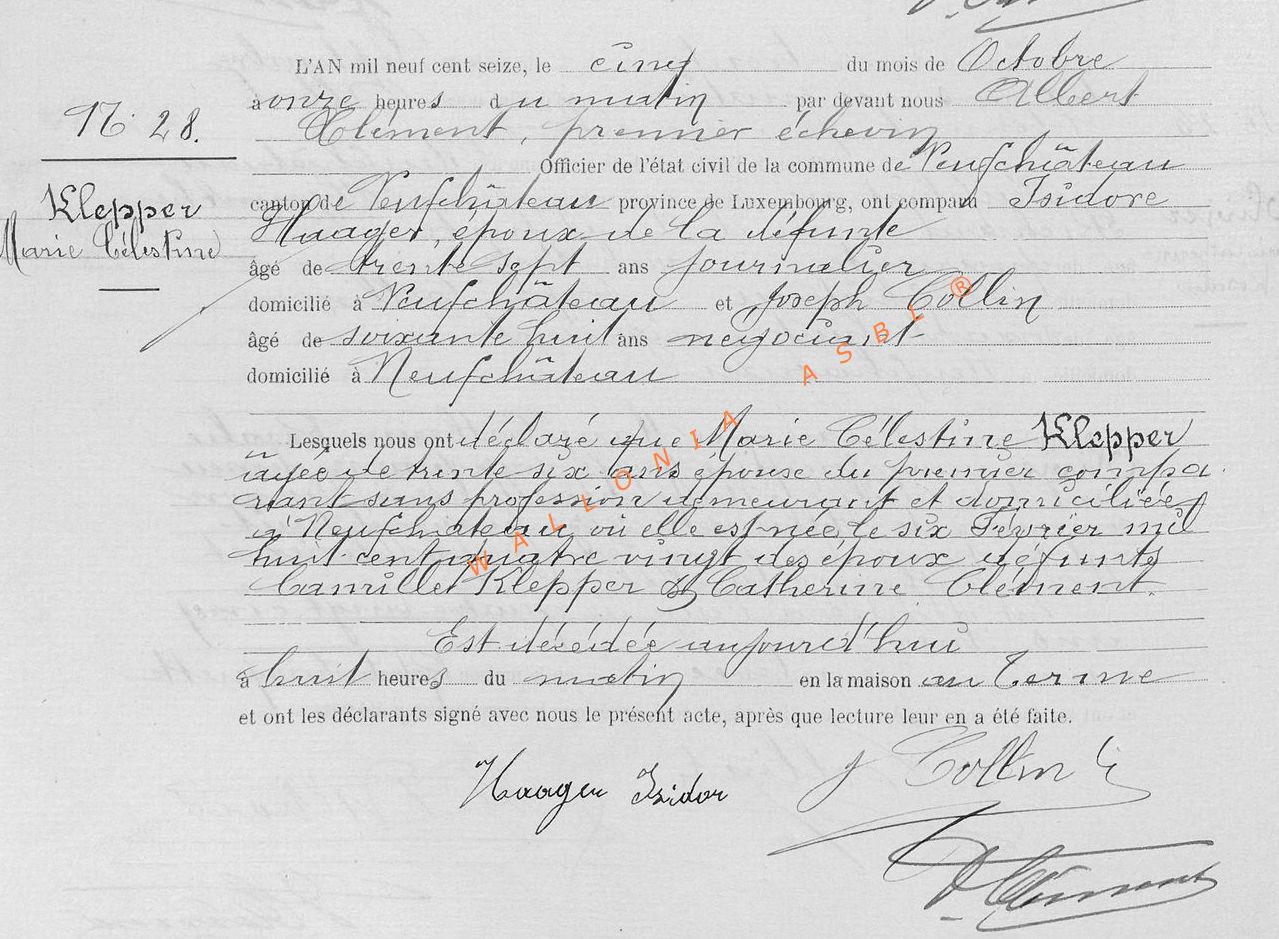 L'AN mil neuf cent seize, le cinq du mois de Octobre
à onze heures du matin par devant nous Albert
Clément, premier échevin
N. 28.
Officier de l'état civil de la commune de Neufchâteau
canton de Neufchâteau province de Luxembourg, ont comparu Isidore
Klepper
Marie Célestine
Haager, époux de la défunte
âgé de trente sept ans journalier
domicilié à Neufchâteau et Joseph Collin
âgé de soixante huit ans négociant
domicilié à Neufchâteau
WALLONIA ASBL ®
Lesquels nous ont déclaré que Marie Célestine Klepper
âgée de trente six ans épouse du premier compa
rant sans profession demeurant et domiciliée
à Neufchateau où elle est née le six Février mil
huit cent quatre vingt des époux défunts
Camille Klepper & Catherine Clément.
Est décédée aujourd'hui
à huit heures du matin en la maison au Terme
et ont les déclarants signé avec nous le présent acte, après que lecture leur en a été faite.
Haager Isidor
J Collin
Clément